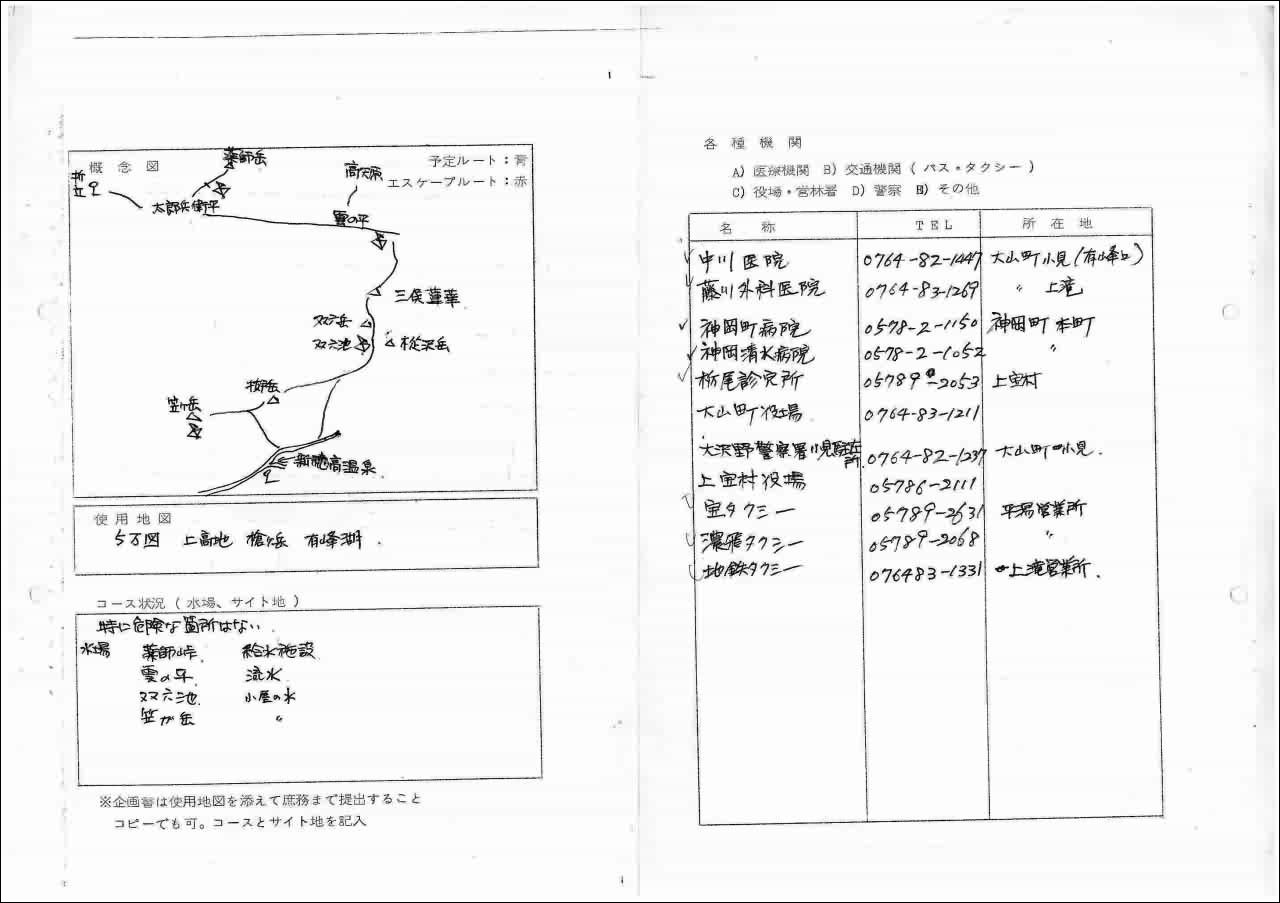 概念図
予定ルート：青
エスケープルート：赤
薬師岳
高天原
折立
太郎兵衛平
雲の平
三俣蓮華
双六岳
双六池
樅沢岳
抜戸岳
笠ヶ岳
新穂高温泉
使用地図
5万図 上高地 槍ヶ岳 有峰湖．
コース状況（水場、サイト地）
特に危険な箇所はない．
水場 薬師峠 給水施設
雲の平 流水
双六池 小屋の水
笠が岳 〃
※企画書は使用地図を添えて庶務まで提出すること
コピーでも可。コースとサイト地を記入
各種機関
A）医療機関 B）交通機関（バス・タクシー）
C）役場・営林署 D）警察 B）その他
名称 TEL 所在地
中川医院 0764-82-1447 大山町小見（有峰口）
藤川外科医院 0764-83-1269 〃 上滝
神岡町病院 0578-2-1150 神岡町本町
神岡清水病院 0578-2-1052 〃
栃尾診究所 05789-2053 上宝村
大山町役場 0764-83-1211
大沢野警察署小見駐在所 0764-82-1237 大山町小見．
上宝村役場 05786-2111
宝タクシー 05789-2631 平湯営業所
濃飛タクシー 05789-2068 〃
地鉄タクシー 076483-1331 上滝営業所．